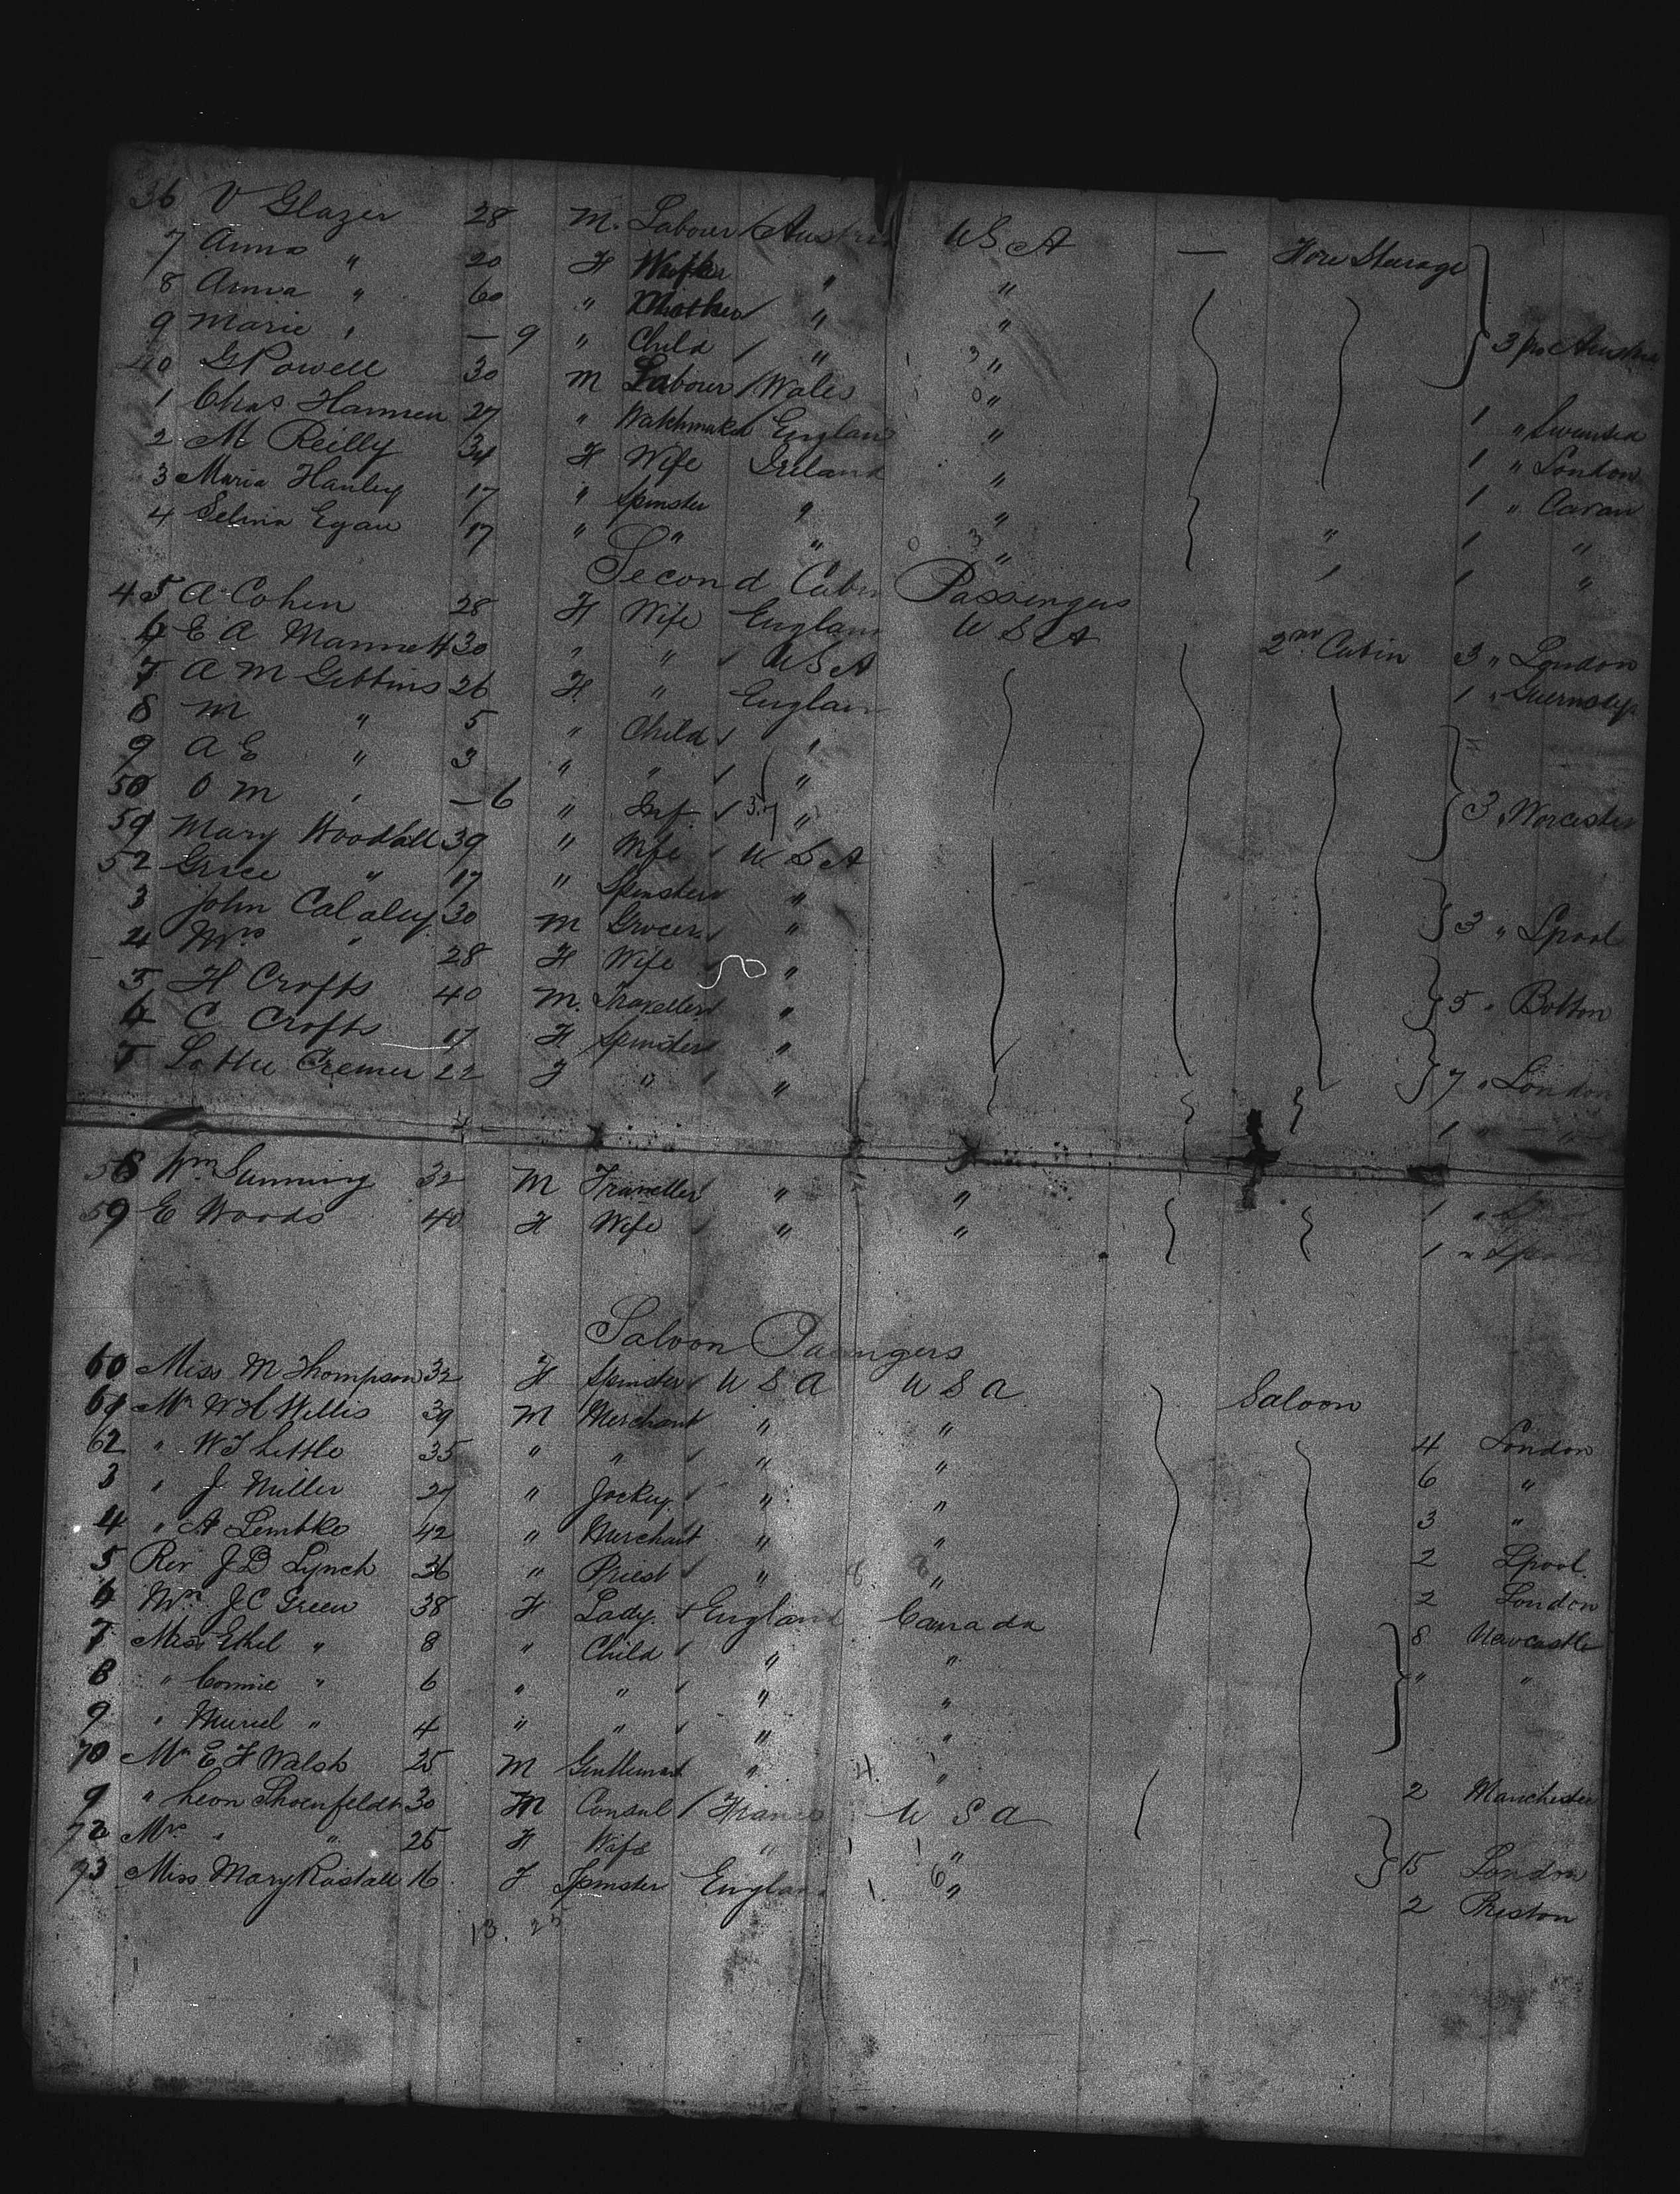 36 V Glazer 28 M. Labour Austria U.S.A — Fore Steerage
7 Anna " 20 F Wife " "
8 Anna " 60 " Mother " "
9 Marie " — 9 " Child " " 3 fr Austria
40 G Powell 30 M Labour Wales " 1 " Swansea
1 Chas Hannen 27 " Watchmaker England " 1 " London
2 M Reilly 34 F Wife Ireland " 1 " Cavan
3 Maria Hanley 17 " Spinster " " " 1 "
4 Selina Egan 17 " " " " " 1 "
Second Cabin Passengers
45 A Cohen 28 F Wife England U S A 2nd Cabin 3 " London
6 E A Mannett 30 " " U S A 1 " Guernsey
7 A M Gibbins 26 F " England
8 M " 5 " Child "
9 A E " 3 " " " 3 Worcester
50 O M " — 6 " Inf. "
51 Mary Woodall 39 " Wife U S A
52 Grace " 17 " Spinster " 3 " Lpool
3 John Calaley 30 M Grocer "
4 Mrs " 28 F Wife " 5 " Bolton
5 H Crofts 40 M. Traveller "
6 C Crofts 17 F Spinster " 7 " London
7 Lottie Cremer 22 F " " 1 "
58 Wm Sunning 32 M Traveller " " 1 "
59 E Woods 40 F Wife " " 1 " Lpool
Saloon Passengers
60 Miss M Thompson 32 F Spinster U S A U S A Saloon
61 Mr W H Willis 39 M Merchant " " 4 London
62 " W T Little 35 " " " " 6 "
3 " J Miller 27 " Jockey " " 3 "
4 " A Lembke 42 " Merchant " " 2 Lpool
5 Rev J D Lynch 36 " Priest " " 2 London
6 Mrs J C Green 38 F Lady. England Canada 8 Newcastle
7 Miss Ethel " 8 " Child " " " "
8 " Connie " 6 " " " "
9 " Muriel " 4 " " " "
70 Mr E F Walsh 25 M Gentleman " " 2 Manchester
1 " Leon Shoenfeldt 30 M Consul France U S A
72 Mrs " " 25 F Wife " " 15 London
73 Miss Mary Rastall 16 F Spinster England " 2 Preston
13. 25